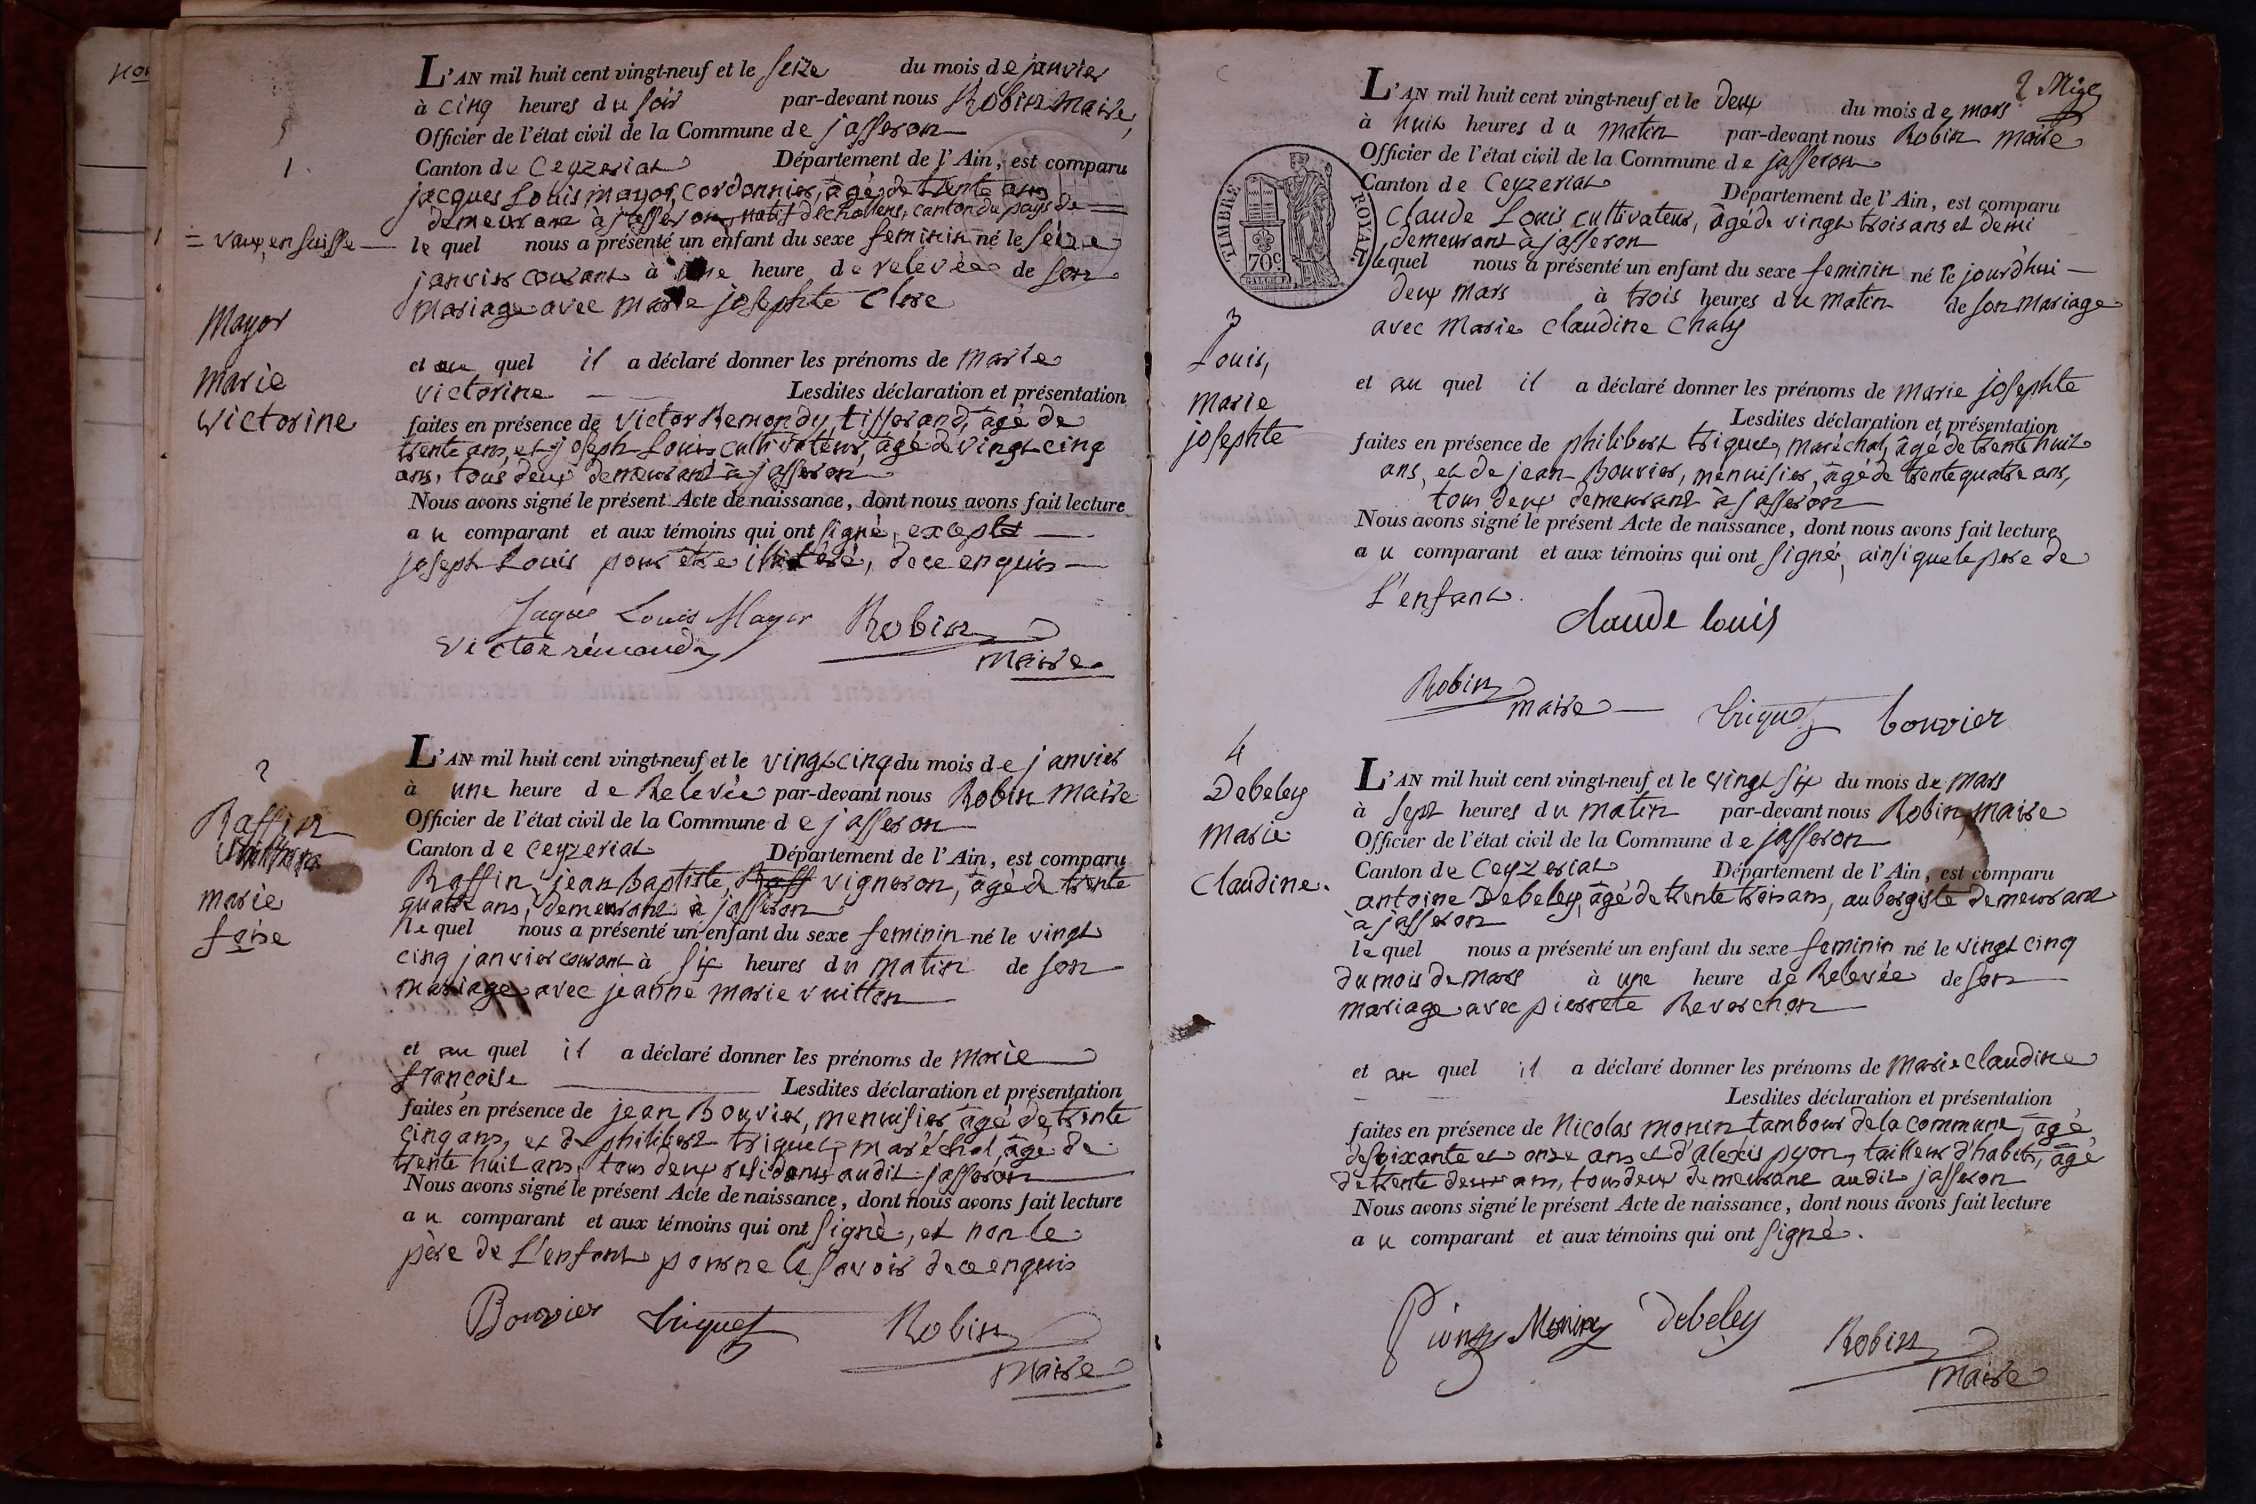 1
= vaux, en suisse —
Mayor
Marie
Victorine
L'AN mil huit cent vingt-neuf et le seize du mois de janvier
à cinq heures du soir par-devant nous Robin maire,
Officier de l'état civil de la Commune de jasseron
Canton de Ceyzeriat Département de l'Ain, est comparu
jacques Louis mayor, cordonnier, âgé de trente ans
demeurant à jasseron, natif d'Echallens, canton du pays de =
le quel nous a présenté un enfant du sexe feminin né le seize
janvier courant à une heure de relevée de son
mariage avec marie josephte Clere
et au quel il a déclaré donner les prénoms de marie
victorine — Lesdites déclaration et présentation
faites en présence de victor Remondy, tisserand, âgé de
trente ans, et joseph Louis, cultivateur, âgé de vingt cinq
ans, tous deux demeurant à jasseron
Nous avons signé le présent Acte de naissance, dont nous avons fait lecture
au comparant et aux témoins qui ont signé, excepté —
joseph Louis pour être illitéré, de ce enquis —
Jaques Louis Mayor Robin
Victor rémondy maire
2
Raffin
marie
foise
L'AN mil huit cent vingt-neuf et le vingt cinq du mois de janvier
à une heure de Relevée par-devant nous Robin Maire
Officier de l'état civil de la Commune de jasseron
Canton de ceyzeriat Département de l'Ain, est comparu
Raffin jean baptiste, Raff vigneron, âgé de trente
quatre ans, demeurant à jasseron
le quel nous a présenté un enfant du sexe feminin né le vingt
cinq janvier courant à six heures du matin de son
mariage avec jeanne marie vuitton
et au quel il a déclaré donner les prénoms de marie
françoise — Lesdites déclaration et présentation
faites en présence de jean Bouvier, menuisier, âgé de trente
cinq ans, et de philibert triquet, maréchal, âgé de
trente huit ans, tous deux residants audit jasseron
Nous avons signé le présent Acte de naissance, dont nous avons fait lecture
au comparant et aux témoins qui ont signé, et non le
père de L'enfant pour ne le savoir de ce enquis
Bouvier triquet Robin
maire
2
TIMBRE ROYAL
70c
3
Louis,
marie
josephte
L'AN mil huit cent vingt-neuf et le deux du mois de mars
à huit heures du matin par-devant nous Robin maire
Officier de l'état civil de la Commune de jasseron
Canton de Ceyzeriat Département de l'Ain, est comparu
Claude Louis cultivateur, âgé de vingt trois ans et demi
demeurant à jasseron
lequel nous a présenté un enfant du sexe feminin né le jourd'hui —
deux mars à trois heures du matin de son mariage
avec Marie Claudine Chaly
et au quel il a déclaré donner les prénoms de marie josephte
Lesdites déclaration et présentation
faites en présence de philibert triquet, maréchal, âgé de trente huit
ans, et de jean Bouvier, menuisier, âgé de trente quatre ans,
tous deux demeurant à jasseron
Nous avons signé le présent Acte de naissance, dont nous avons fait lecture
au comparant et aux témoins qui ont signé, ainsi que le pere de
L'enfant.
claude louis
Robin
maire — triquet bouvier
4
Debeley
Marie
Claudine.
L'AN mil huit cent vingt-neuf et le vingt six du mois de mars
à sept heures du matin par-devant nous Robin, maire
Officier de l'état civil de la Commune de jasseron
Canton de Ceyzeriat Département de l'Ain, est comparu
antoine Debeley, âgé de trente trois ans, aubergiste demeurant
à jasseron
le quel nous a présenté un enfant du sexe feminin né le vingt cinq
du mois de mars à une heure de Relevée de son
mariage avec pierrete Reverchon
et au quel il a déclaré donner les prénoms de marie claudine
Lesdites déclaration et présentation
faites en présence de Nicolas monin tambour de la commune, âgé
de soixante et onze ans et d'alexis pyon, tailleur d'habits, âgé
de trente deux ans, tous deux demeurant audit jasseron
Nous avons signé le présent Acte de naissance, dont nous avons fait lecture
au comparant et aux témoins qui ont signé.
Monin Debeley Robin
maire